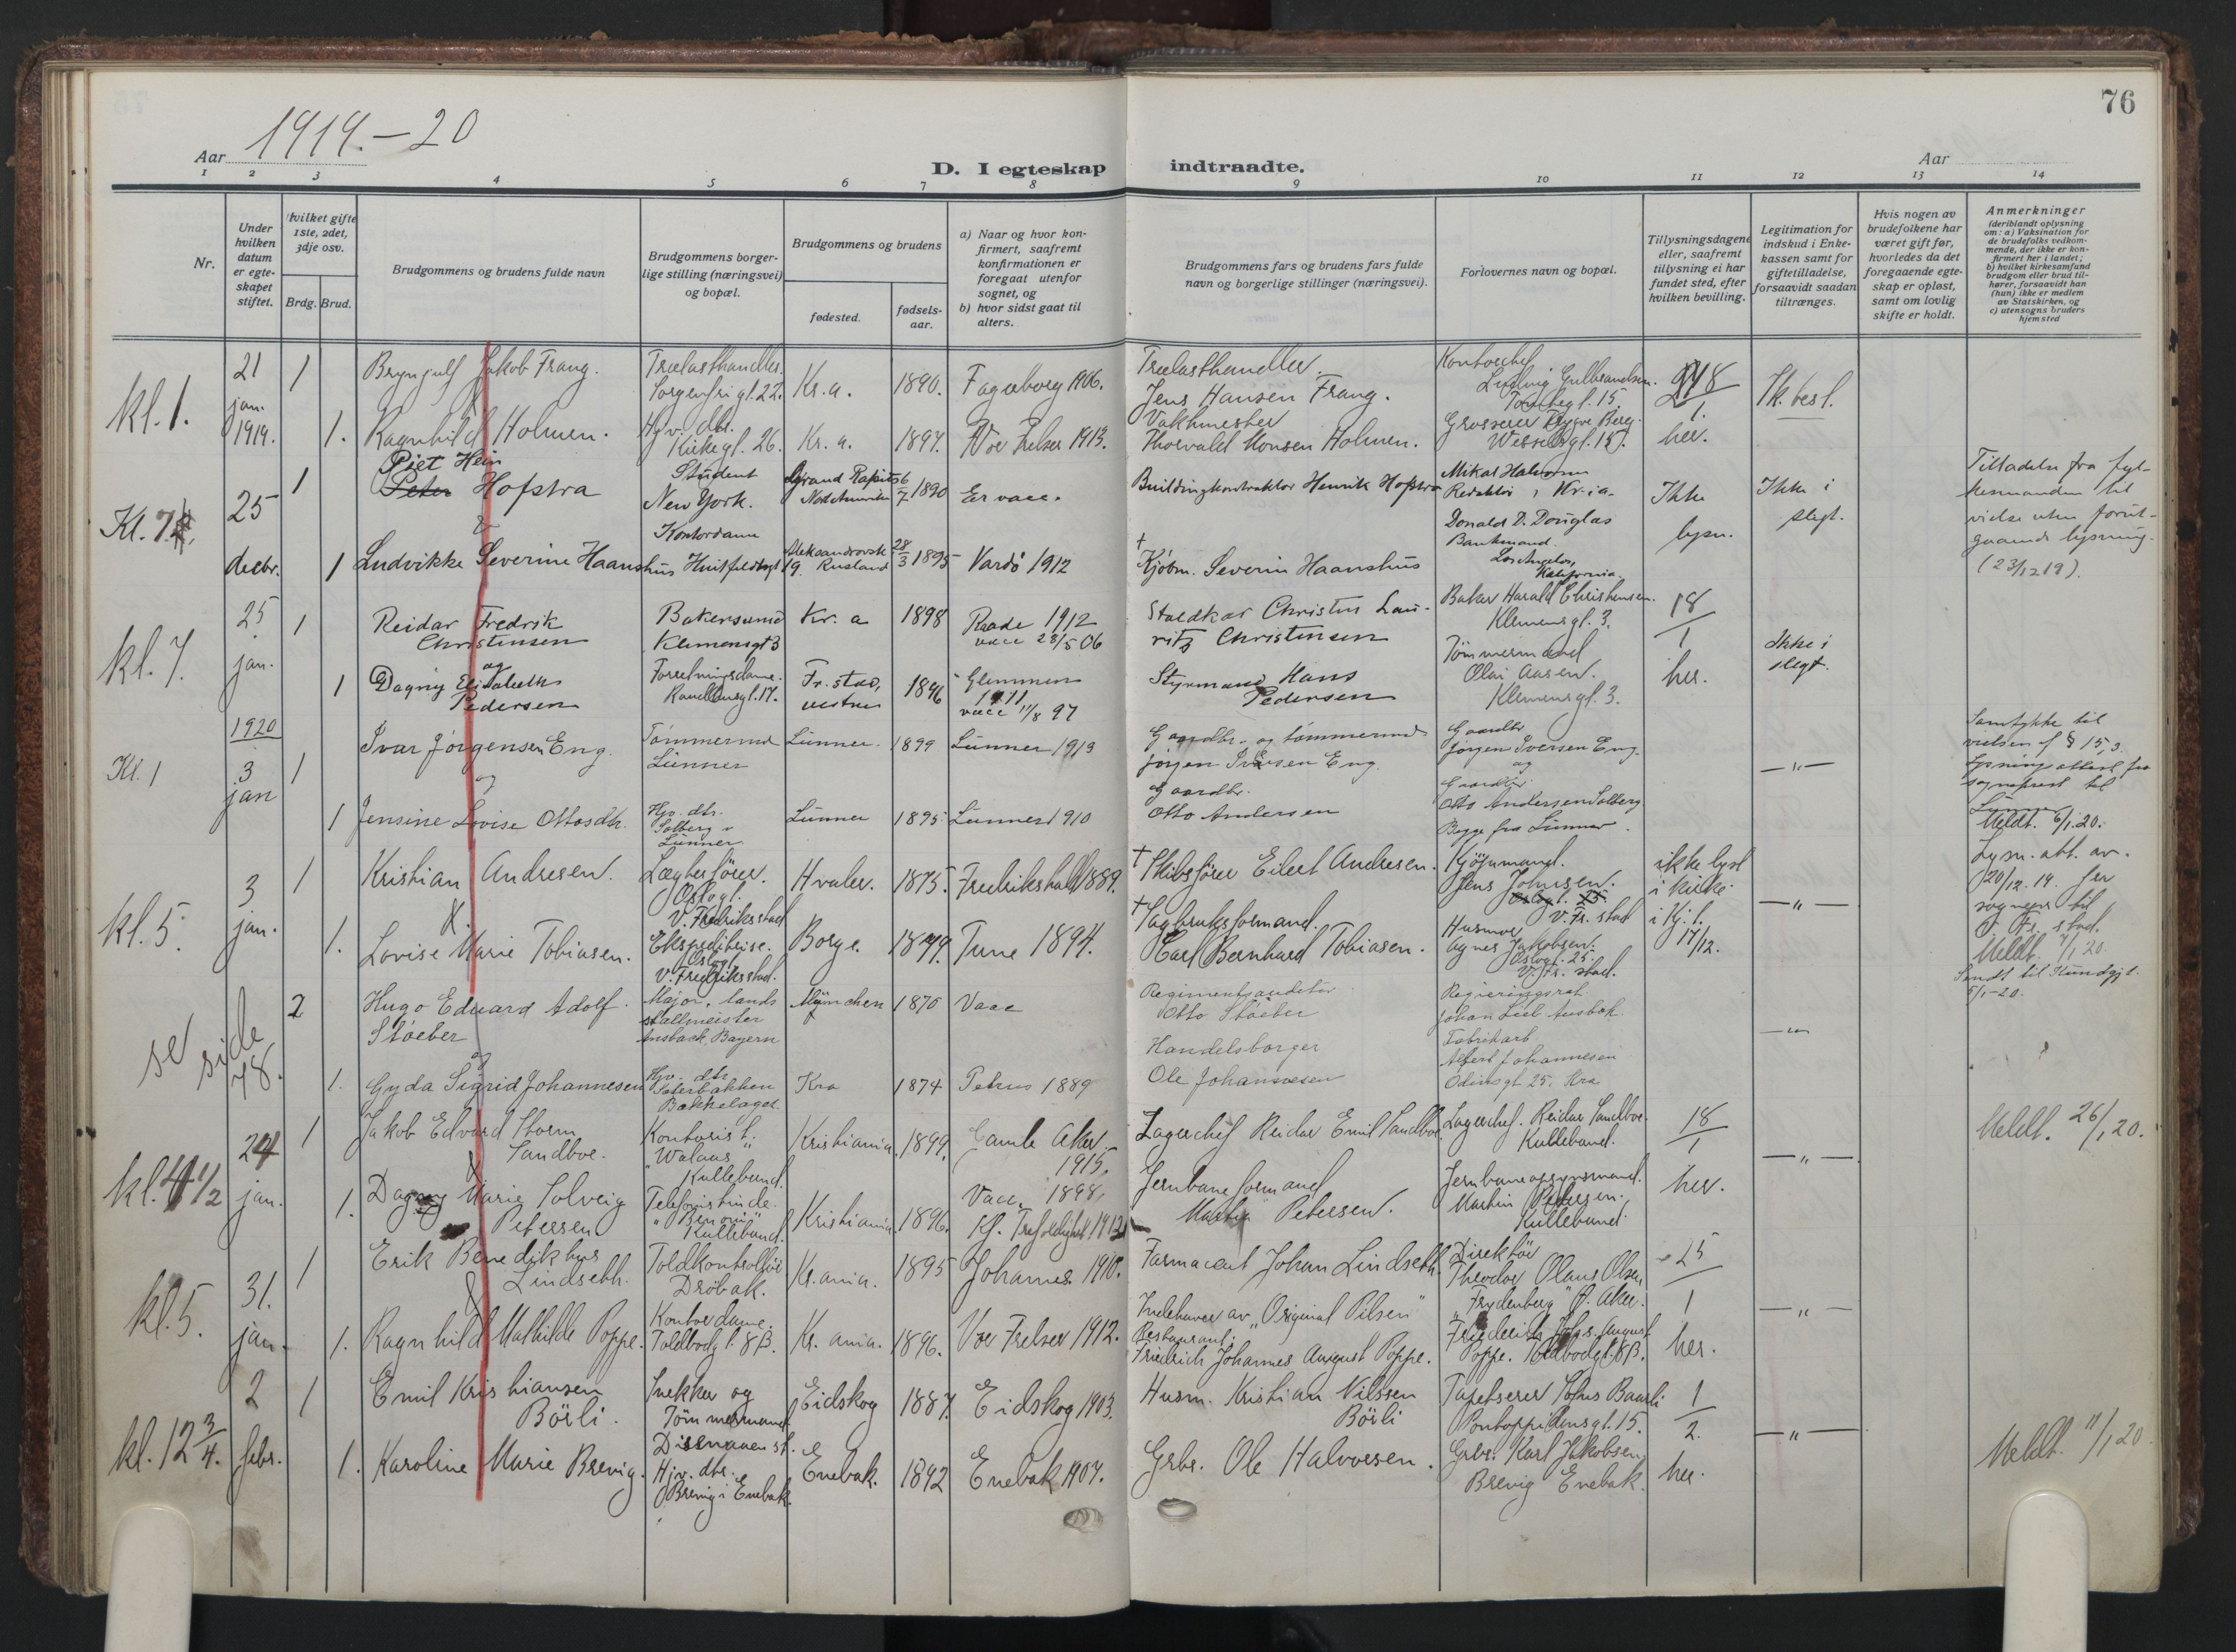 76
Aar 1919.-20
D. I egteskap indtraadte.
Aar
1 2 3 4 5 6 7 8 9 10 11 12 13 14
Nr.
Under hvilken datum er egteskapet stiftet.
Hvilket gifte 1ste, 2det, 3dje osv.
Brdg. Brud.
Brudgommens og brudens fulde navn
Brudgommens borgerlige stilling (næringsvei) og bopæl.
Brudgommens og brudens
fødested.
fødselsaar.
a) Naar og hvor konfirmert, saafremt konfirmationen er foregaat utenfor sognet, og
b) hvor sidst gaat til alters.
Brudgommens fars og brudens fars fulde navn og borgerlige stillinger (næringsvei).
Forlovernes navn og bopæl.
Tillysningsdagene eller, saafremt tillysning ei har fundet sted, efter hvilken bevilling.
Legitimation for indskud i Enkekassen samt for giftetilladelse, forsaavidt saadan tiltrænges.
Hvis nogen av brudefolkene har været gift før, hvorledes da det foregaaende egteskap er opløst, samt om lovlig skifte er holdt.
Anmerkninger
(deriblandt oplysning om: a) Vaksination for de brudefolks vedkommende, der ikke er konfirmert her i landet; b) hvilket kirkesamfund brudgom eller brud tilhører, forsaavidt han (hun) ikke er medlem av Statskirken, og c) utensogns bruders hjemsted
kl. 1. 21 jan. 1919. 1 Brynjulf Jakob Frang. Trælasthandler. Sorgenfrigt. 22. Kr.a. 1890. Fagerborg 1906. Trælasthandler. Jens Hansen Frang. Kontorchef Ludvig Gulbrandsen. 18/1. her.
1. Ragnhild Holmen. Hjv. dtr. Kirkegt. 26. Kr. a. 1897. Vor Frelser 1913. Vaktmester Thorvald Monsen Holmen. Grosserer Trygve Berg. Wesselsgt. 15.
Kl. 7 25 decbr. 1 Piet Hein Peter Hofstra Student New York. Grand Rapids Nordamerika 6/7 1890 Er vacc. Buildingkontraktør Henrik Hofstra Mikal Redaktør, Kr.ia. Ikke lysn. Ikke i slegt. Tilladelse fra fylkesmanden til vielse uten forutgaaende lysning. (23/12 19).
& 1 Ludvikke Severine Haanshus Kontordame Huitfeldtsgt 19. Aleksandrovsk Rusland 28/3 1895 Vardö 1912 † Kjöbm. Severin Haanshus Donald D. Douglas Bankmand. Los Angelos, Kalifornia.
kl. 7. 25 jan. 1 Reidar Fredrik Christensen Bakersvend Klemensgt 3 Kr. a 1898 Raade 1912 vacc 28/5 06 Staldkar Christen Lauritz Christensen Baker Harald Christensen. Klemensgt. 3. 18/1 her. Ikke i slegt.
og 1 Dagny Elisabeth Pedersen Forretningsdame. Fr. stad, vestre 1896 Glemmen 1911 vacc 11/8 97 Styrmand Hans Pedersen Tömmermand Olai Aasen. Klemensgt. 3.
Kl. 1 1920 3 jan 1 Ivar Jørgensen Eng. Tömmermd Lunner Lunner 1899 Lunner 1913 Gaardbr. og tömmermd Jørgen Iversen Eng. Gaardbr Jörgen Iversen Eng. og —"— Samtykke til vielsen f § 15,3. Lysningsattest fra sogneprest til Lunner Meldt. 6/1.20.
og 1 Jensine Lovise Ottosdtr. Hjv. dtr. Solberg Lunner Lunner 1895 Lunner 1910 Gaardbr. Otto Andersen Gaardbr. Otto Andersen Solberg Begge fra Lunner.
kl. 5. 3 jan. 1 Kristian Andresen. Oslogt. V. Fredriksstad Hvaler. 1875. Fredrikshald 1889. † Skibsfører Eilert Andresen. Kjøpmand. Jens Johnsen. Oslogt. 25. V. Fr. stad ikke lyst i kirke. 17/12. —"— Lysn. att. av. 20/12. 19. fra sognepr til V. Fr. stad. Meldt. 7/1 20 Sendt til Kundgj. 5/1-20.
1. Lovise Marie Tobiasen. Ekspeditrise. Oslogt. V. Fredriksstad. Borge. 1879. Tune 1894. † Sagbruksformand. Carl Bernhard Tobiasen. Husmor Agnes Jakobsen. Oslogt. 25. V. Fr. stad.
se side 78. 2 Hugo Eduard Adolf Stöeber Major, landstallmeister Ansbach, Bayern München 1870 Vacc Regimentsauditør Otto Stöeber Regieringsrat Johan Lieb Ansbak. —"—
og 1. Gyda Sigrid Johannesen Hjv. dtr. Sæterbakken Bækkelaget. Kra 1874 Petrus 1889 Handelsborger Ole Johannesen Fabrikarb Alfert Johannesen Odinsgt. 25. Kra
kl. 4 1/2 24 jan. 1 Jakob Edvard Storm Sandboe. Kontorist. Kullebund. Kristiania. 1899. Gamle Aker. 1915. Lagerchef Reidar Emil Sandboe Lagerchef. Reidar Sandboe. Kullebund. 18/1 her. —"— Meldt. 26/1 20.
1. Dagny Marie Solveig Petersen Telefonistinde. Kullebund. Kristiania 1896. Vacc. 1898. Kf. Trefoldighet 1912 Jernbaneformand Martin Petersen. Jernbaneopsynsmand. Martin Petersen. Kullebund.
kl. 5. 31. jan. 1 Erik Benedikhus Lindseth. Toldkontrollör Dröbak. Kr.ania. 1895 Johannes 1910. Farmaceut Johan Lindseth. Direktör Theodor Olaus Olsen "Frydenberg" Ø. Aker. 25/1 her. —"—
1. Ragnhild Mathilde Poppe. Kontordame. Toldbodgt. 8 B. Kr. ania. 1896. Vor Frelser 1912. Indehaver av "Original Pilsen" Restaurant. Friedrich Johannes August Poppe. Friedrich Johs. August Poppe. Toldbodgt. 8 B.
kl. 12 3/4. 2 febr. 1 Emil Kristiansen Börli. Snekker og Tömmermand Disenaaen st. Eidskog 1887. Eidskog 1903. Husm. Kristian Nilssen Börli Tapetserer Johs Baarli Pontoppidansgt. 15. 1/2. her. —"— Meldt. 11/1 20
1. Karoline Marie Brevig. Hjv. dtr. Brevig i Enebak. Enebak. 1892 Enebak 1907. Grbr. Ole Halvorsen. Grbr. Karl Jakobsen Brevig Enebak.